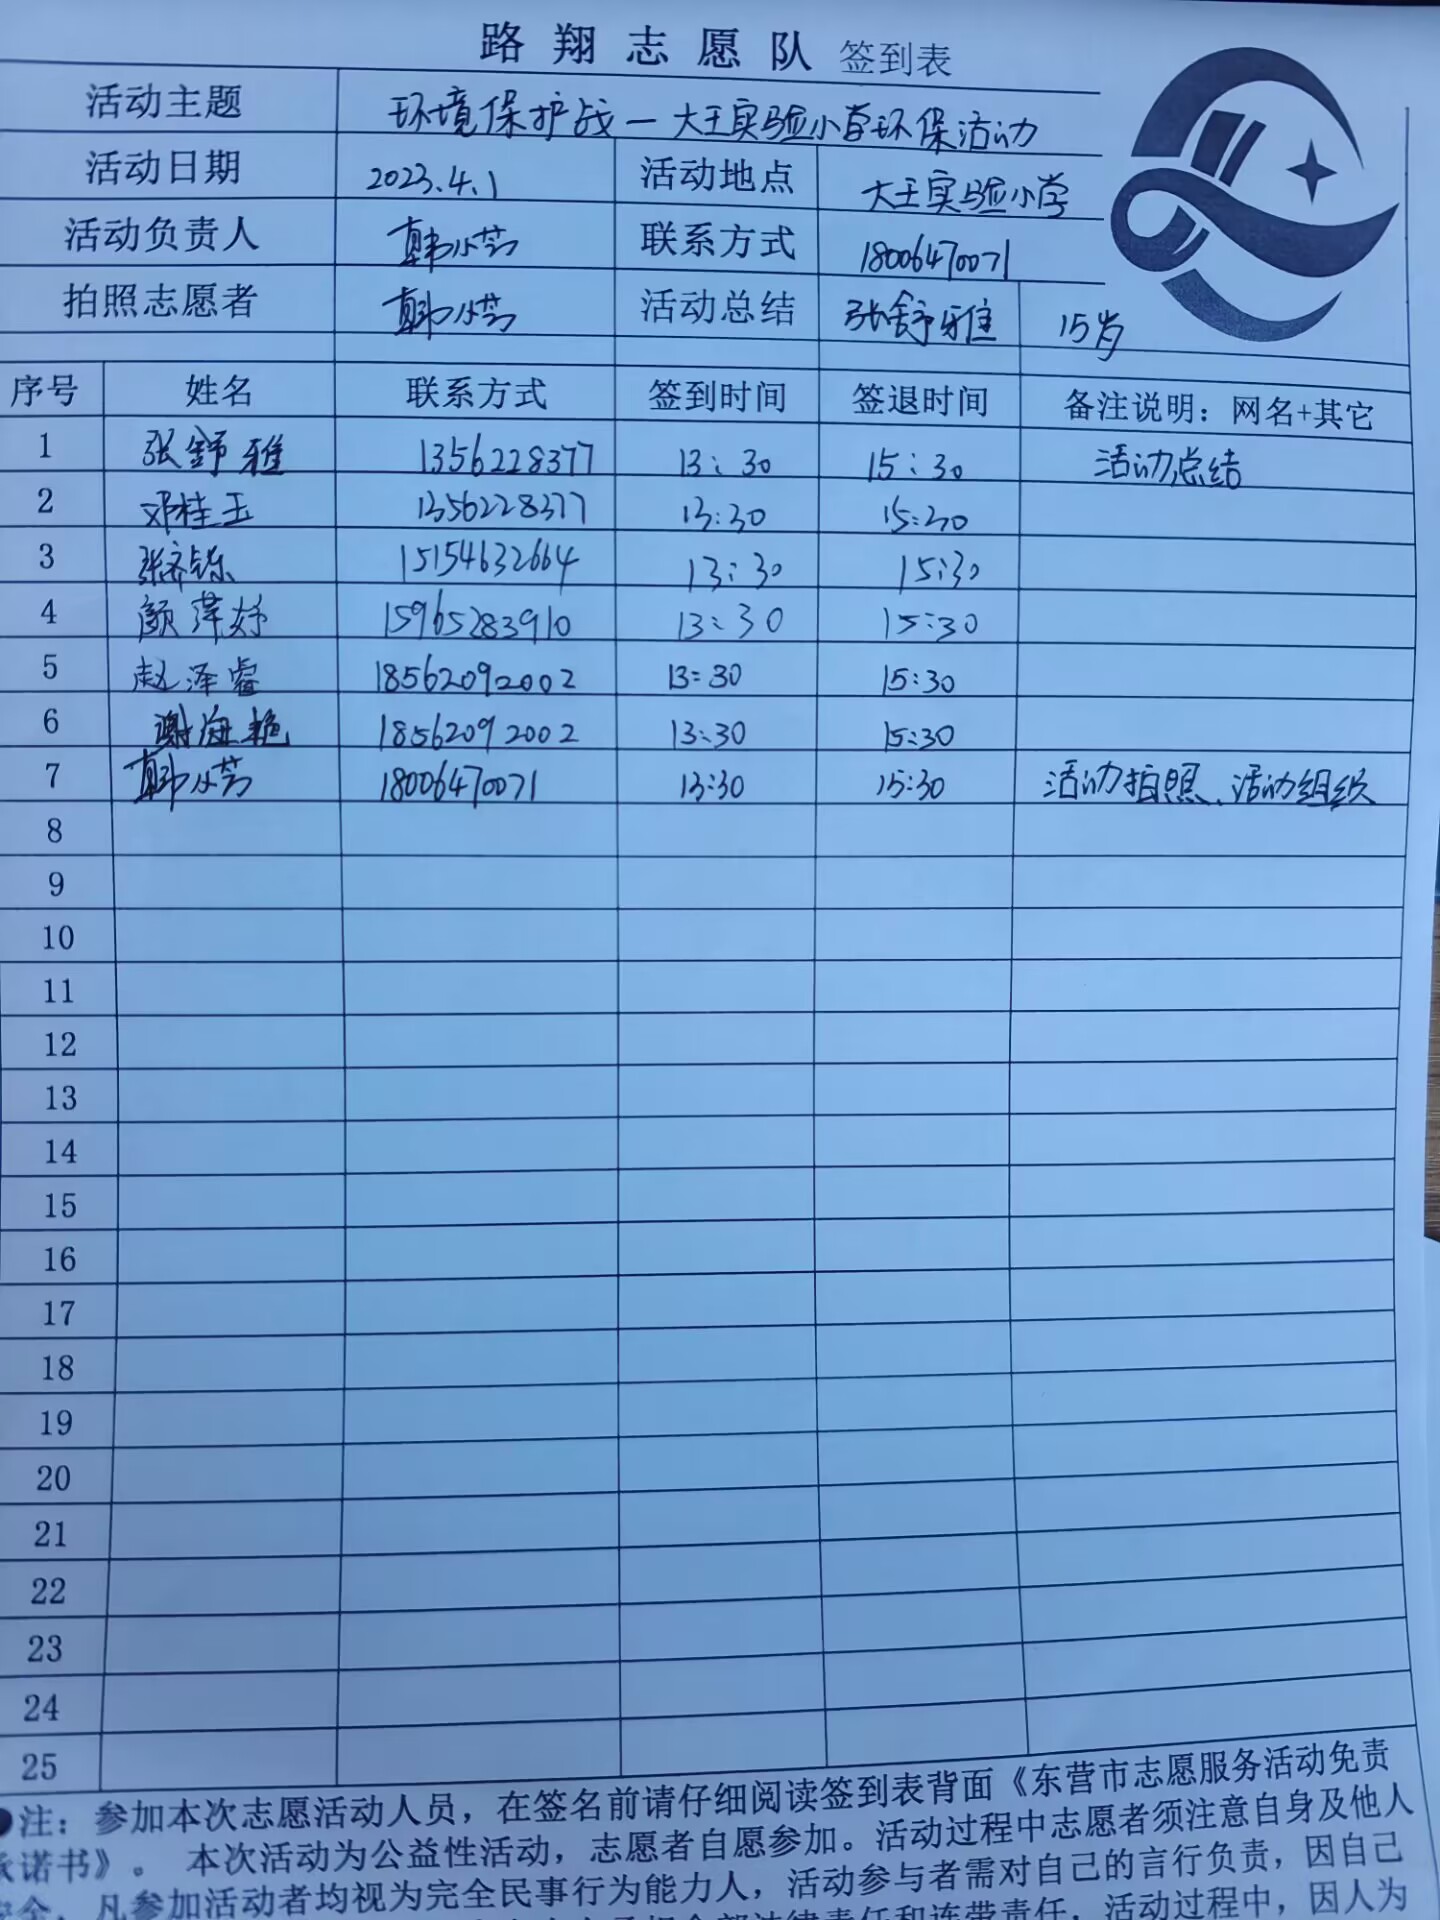 路翔志愿队 签到表
活动主题 环境保护战一大王实验小学环保活动
活动日期 2023.4.1 活动地点 大王实验小学
活动负责人 韩小芳 联系方式 18006470071
拍照志愿者 韩小芳 活动总结 张舒雅 15岁
序号 姓名 联系方式 签到时间 签退时间 备注说明：网名+其它
1 张舒雅 1356228377 13:30 15:30 活动总结
2 邓桂玉 1356228377 13:30 15:30
3 张济铄 15154632664 13:30 15:30
4 颜萍妤 15965283910 13:30 15:30
5 赵泽睿 18562092002 13:30 15:30
6 谢海艳 18562092002 13:30 15:30
7 韩小芳 18006470071 13:30 15:30 活动拍照、活动组织
8
9
10
11
12
13
14
15
16
17
18
19
20
21
22
23
24
25
●注：参加本次志愿活动人员，在签名前请仔细阅读签到表背面《东营市志愿服务活动免责
承诺书》。 本次活动为公益性活动，志愿者自愿参加。活动过程中志愿者须注意自身及他人
安全，凡参加活动者均视为完全民事行为能力人，活动参与者需对自己的言行负责，因自己
承担全部法律责任和连带责任，活动过程中，因人为